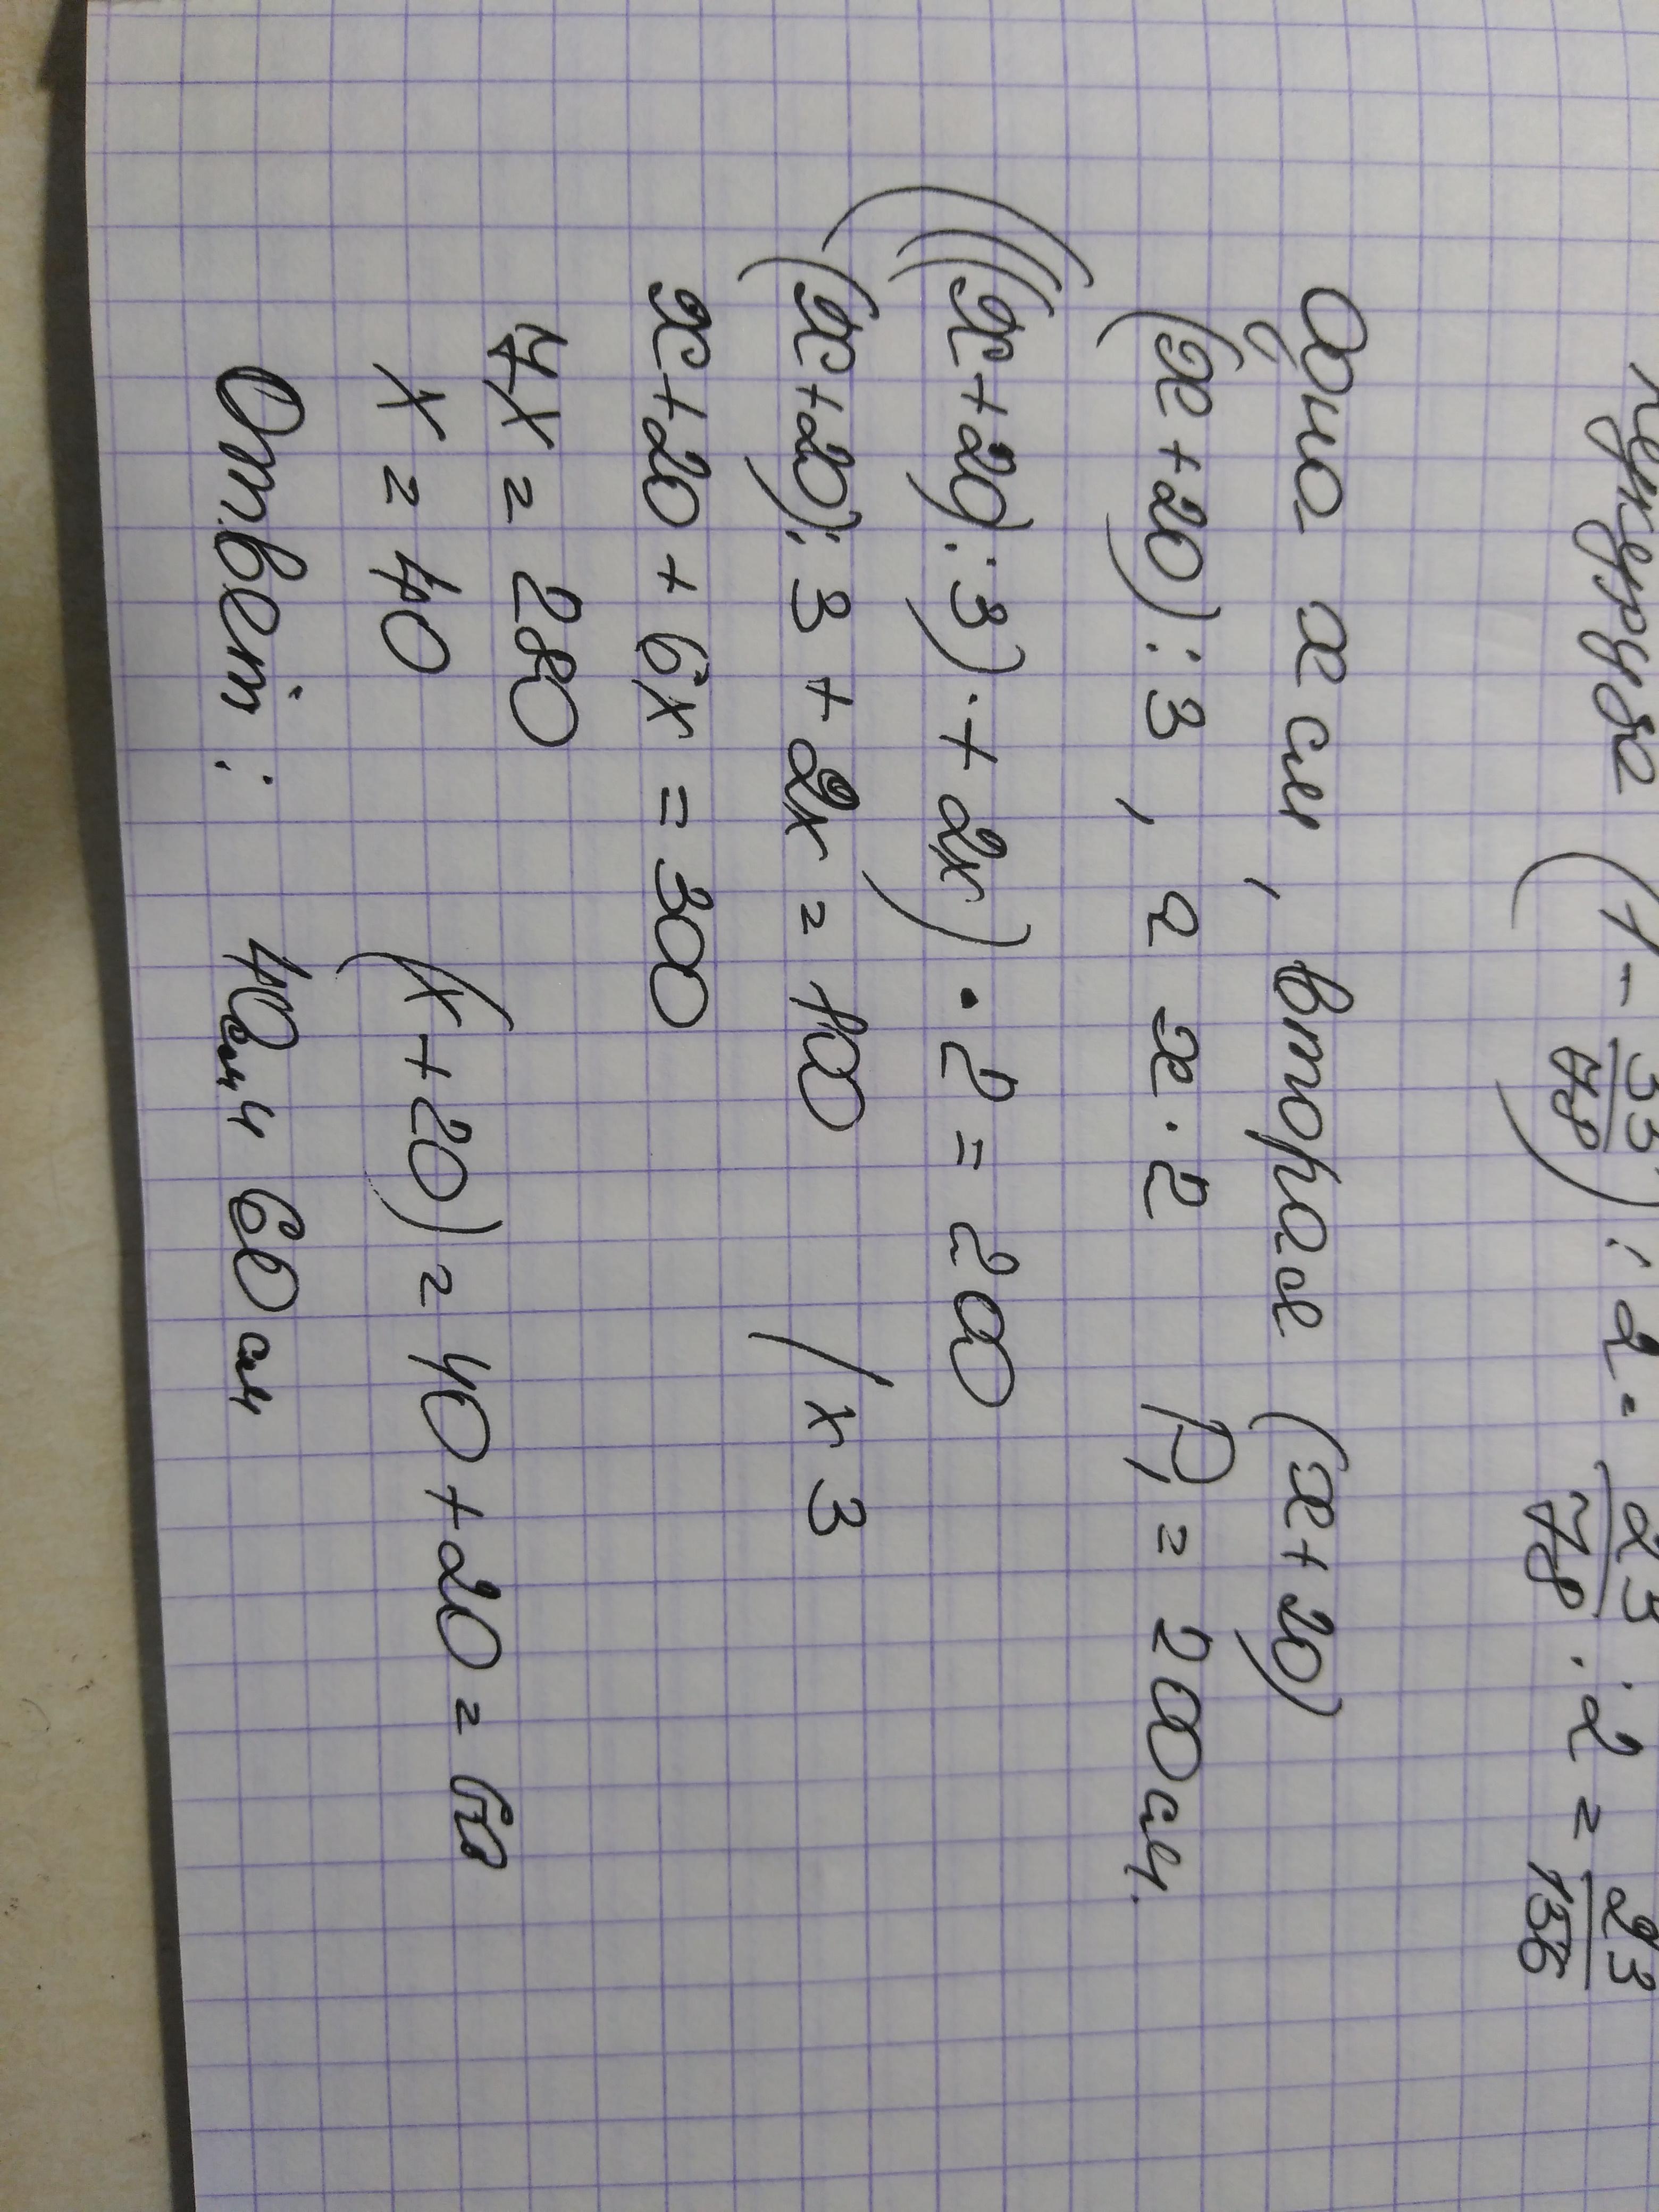 (1 - 33/78) : 2 = 23/78 · 2 = 23/156
Одна x см, вторая (x+20)
(x+20) : 3, а x · 2 P₁ = 200 см.
(((x+20) : 3) · + 2x) · 2 = 200
(x+20) : 3 + 2x = 100 / x 3
x+20 + 6x = 300
7x = 280
x = 40 (x+20) = 40+20 = 60
Ответ: 40 см и 60 см